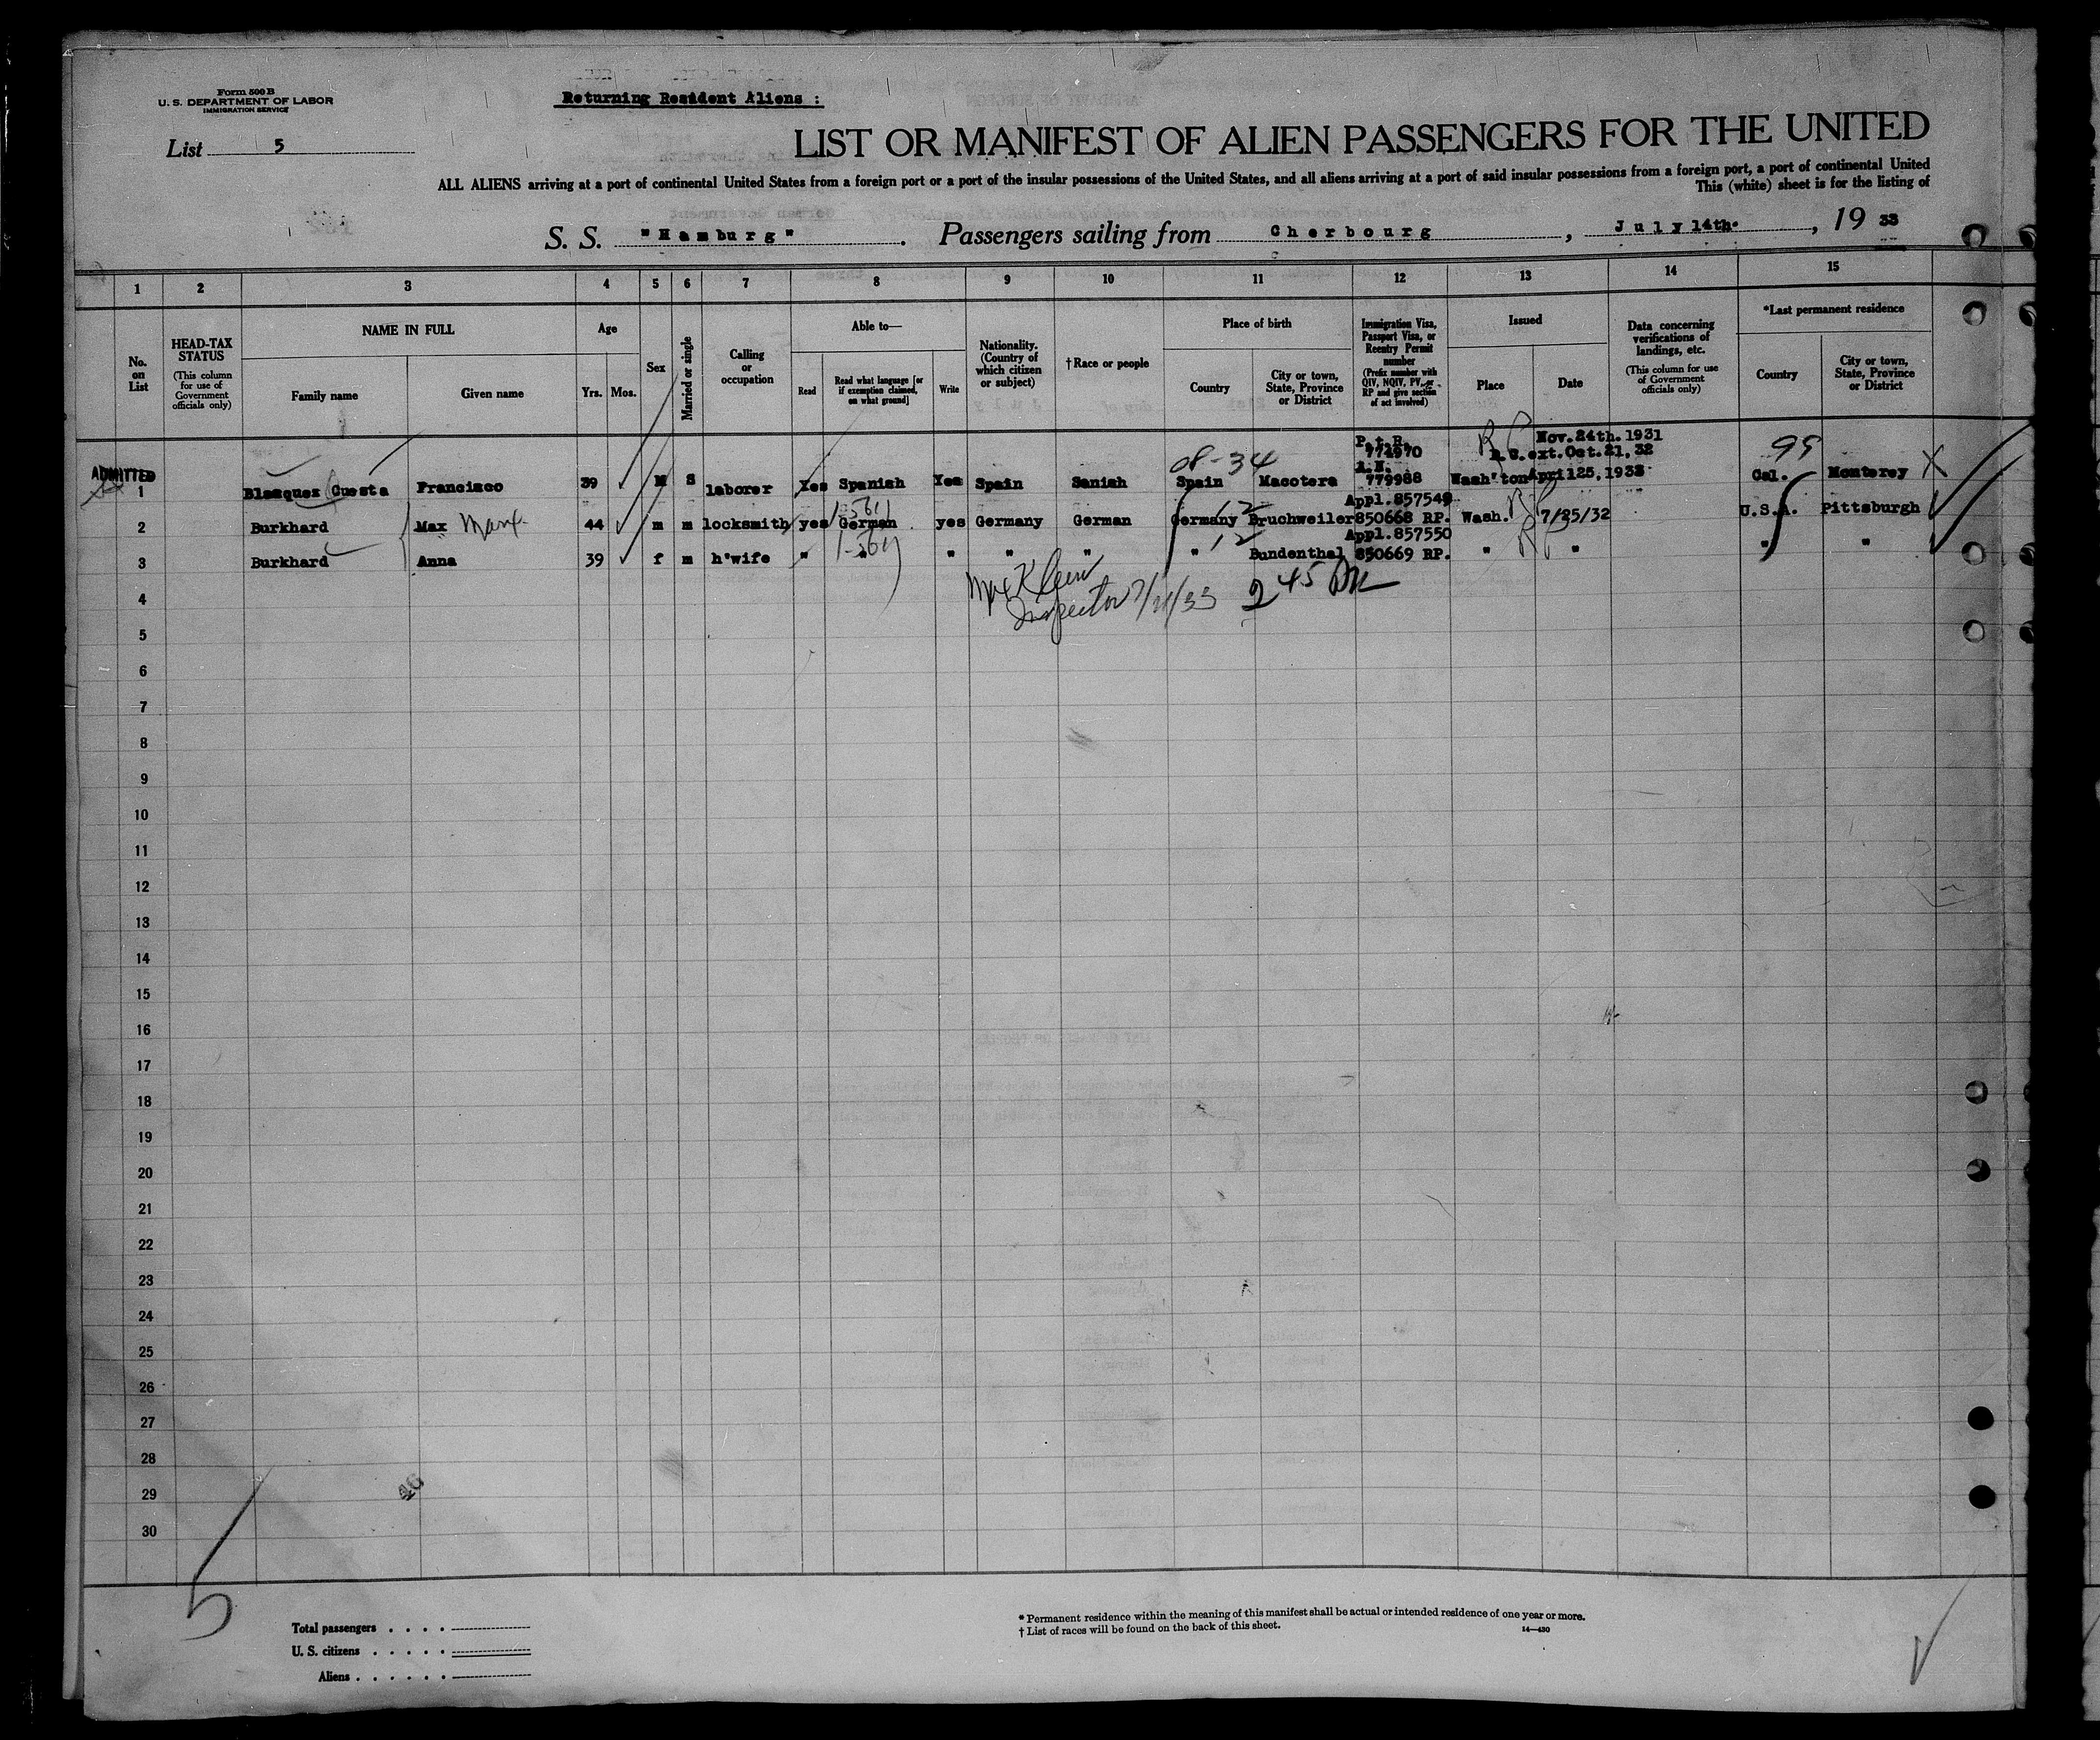 Form 500 B
U. S. DEPARTMENT OF LABOR
IMMIGRATION SERVICE
Returning Resident Aliens :
List 5
LIST OR MANIFEST OF ALIEN PASSENGERS FOR THE UNITED
ALL ALIENS arriving at a port of continental United States from a foreign port or a port of the insular possessions of the United States, and all aliens arriving at a port of said insular possessions from a foreign port, a port of continental United
This (white) sheet is for the listing of
S. S. "Hamburg" . Passengers sailing from Cherbourg , July 14th. , 19 33
1 2 3 4 5 6 7 8 9 10 11 12 13 14 15
No. on List
HEAD-TAX STATUS (This column for use of Government officials only)
NAME IN FULL
Family name
Given name
Age
Yrs. Mos.
Sex
Married or single
Calling or occupation
Able to—
Read
Read what language [or if exemption claimed, on what ground]
Write
Nationality. (Country of which citizen or subject)
† Race or people
Place of birth
Country
City or town, State, Province or District
Immigration Visa, Passport Visa, or Reentry Permit number (Prefix number with QIV, NQIV, PV, or RP and give section of act involved)
Issued
Place
Date
Data concerning verifications of landings, etc. (This column for use of Government officials only)
*Last permanent residence
Country
City or town, State, Province or District
P.t.R. RP Nov.24th.1931
08-34 774970 R.C.ext.Oct.21,32 99
ADMITTED
1 Blazquez Cuesta Francisco 39 M S laborer Yes Spanish Yes Spain Sanish Spain Macotera 779988 Wash'ton April25,1933 Cal. Monterey X
1-5611 12 Appl.857549 RP
2 Burkhard Max Marx 44 m m locksmith yes German yes Germany German Germany Bruchweiler 850668 RP. Wash. 7/25/32 U.S.A. Pittsburgh
12 Appl.857550 RP
3 Burkhard Anna 39 f m h'wife " " " " " " Bundenthal 850669 RP. " " " "
Klein
Inspector 7/21/33 2 45 PM
4
5
6
7
8
9
10
11
12
13
14
15
16
17
18
19
20
21
22
23
24
25
26
27
28
29
30
5
Total passengers . . . .
U. S. citizens . . . . .
Aliens . . . . . .
* Permanent residence within the meaning of this manifest shall be actual or intended residence of one year or more.
† List of races will be found on the back of this sheet.
14—430